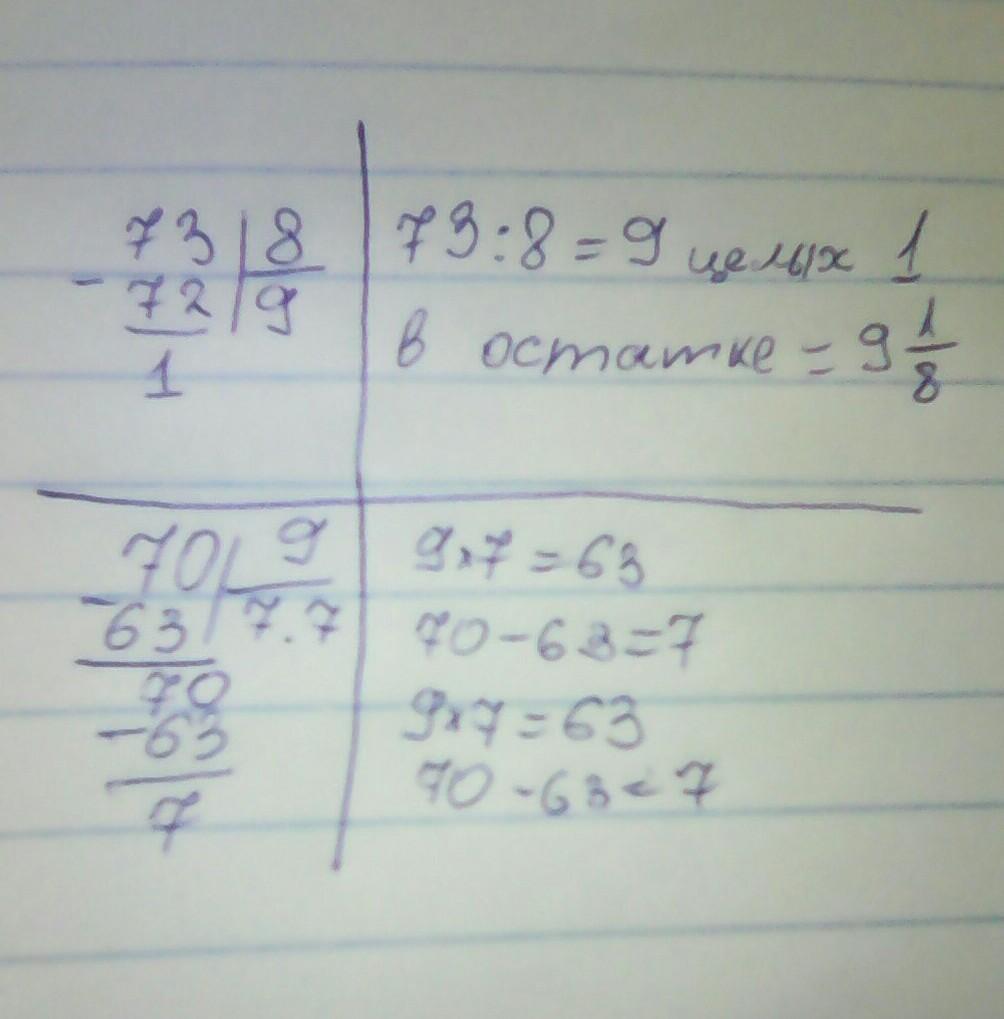 73 8
- 72 9
1
73:8=9 целых 1
в остатке = 9 1/8
70 9
- 63 7.7
70
- 63
7
9×7=63
70-63=7
9×7=63
70-63=7